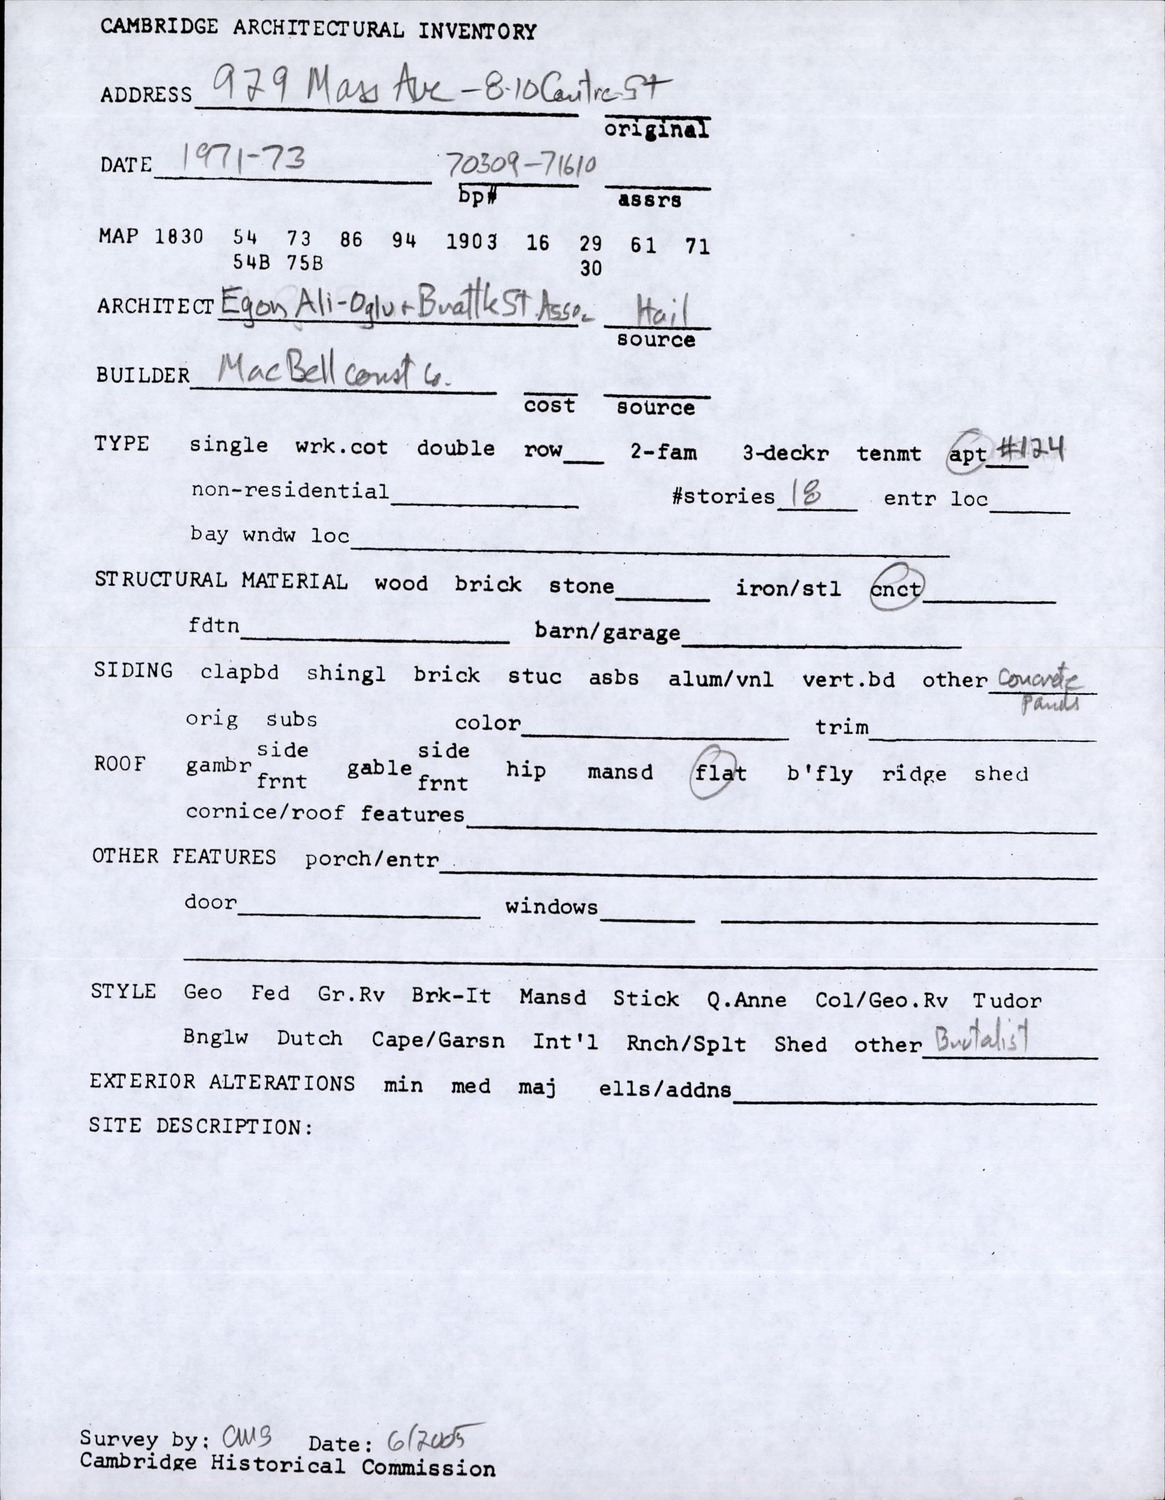 CAMBRIDGE ARCHITECTURAL INVENTORY
ADDRESS 979 Mass Ave - 8-10 Centre St
original
DATE 1971-73 70309-71610
bp# assrs
MAP 1830 54 73 86 94 1903 16 29 61 71
54B 75B 30
ARCHITECT Egon Ali-Oglu + Brattle St Asso. Hail
source
BUILDER MacBell const Co.
cost source
TYPE single wrk.cot double row 2-fam 3-deckr tenmt apt #124
non-residential #stories 18 entr loc
bay wndw loc
STRUCTURAL MATERIAL wood brick stone iron/stl cnct
fdtn barn/garage
SIDING clapbd shingl brick stuc asbs alum/vnl vert.bd other Concrete
Panels
orig subs color trim
side side
ROOF gambr gable hip mansd flat b'fly ridge shed
frnt frnt
cornice/roof features
OTHER FEATURES porch/entr
door windows
STYLE Geo Fed Gr.Rv Brk-It Mansd Stick Q.Anne Col/Geo.Rv Tudor
Bnglw Dutch Cape/Garsn Int'l Rnch/Splt Shed other Brutalist
EXTERIOR ALTERATIONS min med maj ells/addns
SITE DESCRIPTION:
Survey by: CMS Date: 6/2005
Cambridge Historical Commission